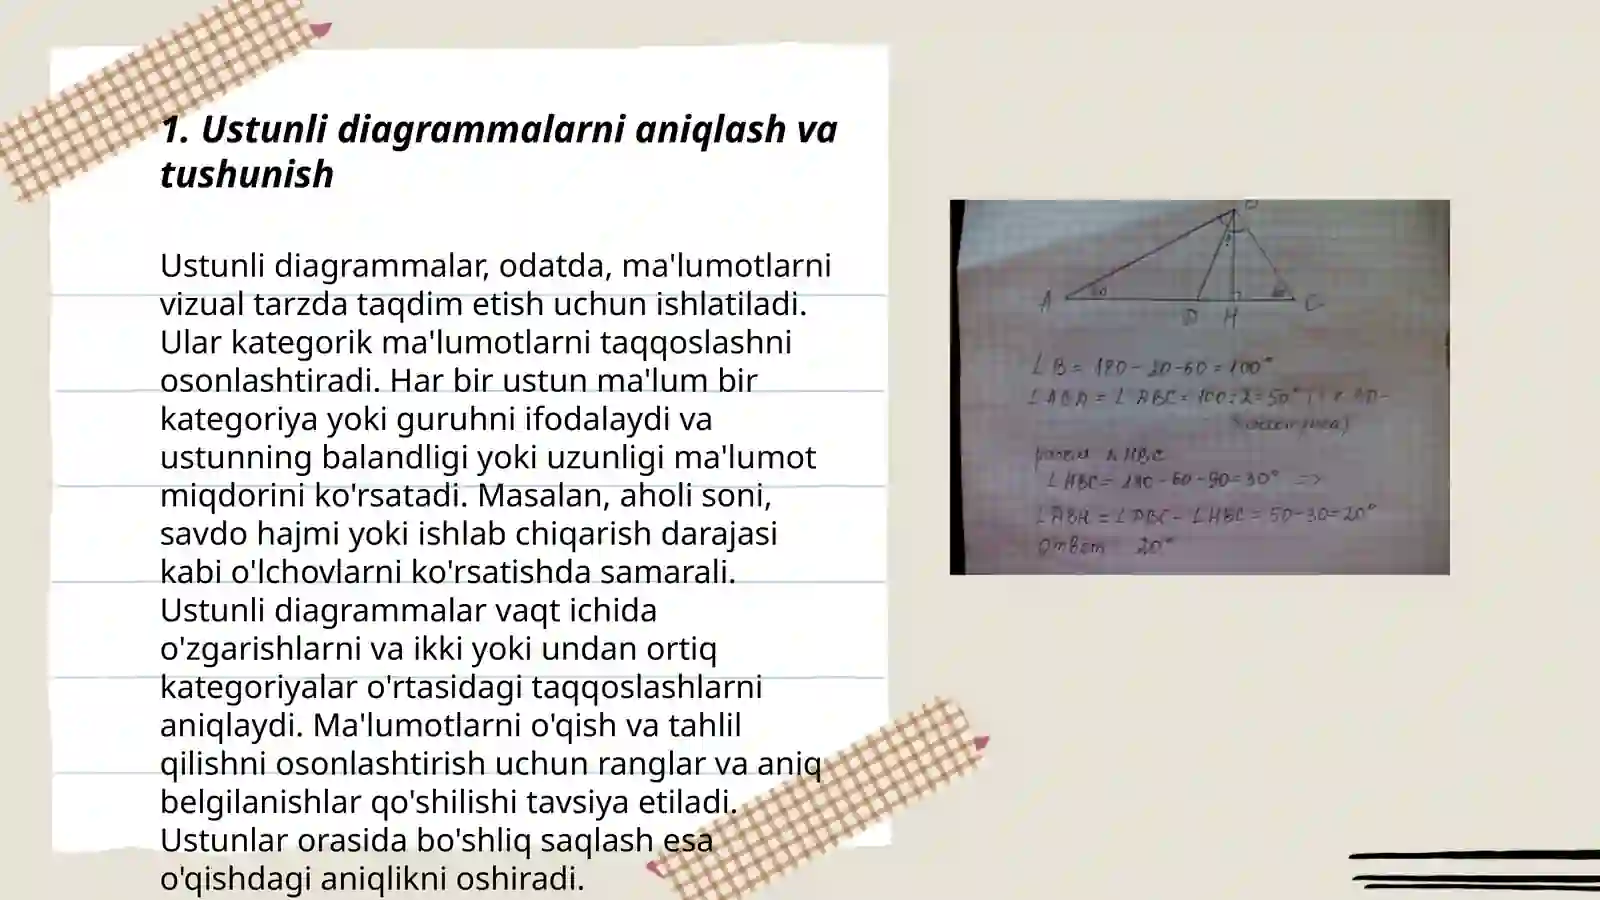 1. Ustunli diagrammalarni aniqlash va
tushunish
Ustunli diagrammalar, odatda, ma'lumotlarni
vizual tarzda taqdim etish uchun ishlatiladi.
Ular kategorik ma'lumotlarni taqqoslashni
osonlashtiradi. Har bir ustun ma'lum bir
kategoriya yoki guruhni ifodalaydi va
ustunning balandligi yoki uzunligi ma'lumot
miqdorini ko'rsatadi. Masalan, aholi soni,
savdo hajmi yoki ishlab chiqarish darajasi
kabi o'lchovlarni ko'rsatishda samarali.
Ustunli diagrammalar vaqt ichida
o'zgarishlarni va ikki yoki undan ortiq
kategoriyalar o'rtasidagi taqqoslashlarni
aniqlaydi. Ma'lumotlarni o'qish va tahlil
qilishni osonlashtirish uchun ranglar va aniq
belgilanishlar qo'shilishi tavsiya etiladi.
Ustunlar orasida bo'shliq saqlash esa
o'qishdagi aniqlikni oshiradi.
A D H C
∠B = 180 - 20 - 60 = 100°
= 100 : 2 = 50°
∠HBC = 180 - 60 - 90 = 30° =>
= ∠DBC - ∠HBC = 50 - 30 = 20°
Ответ 20°